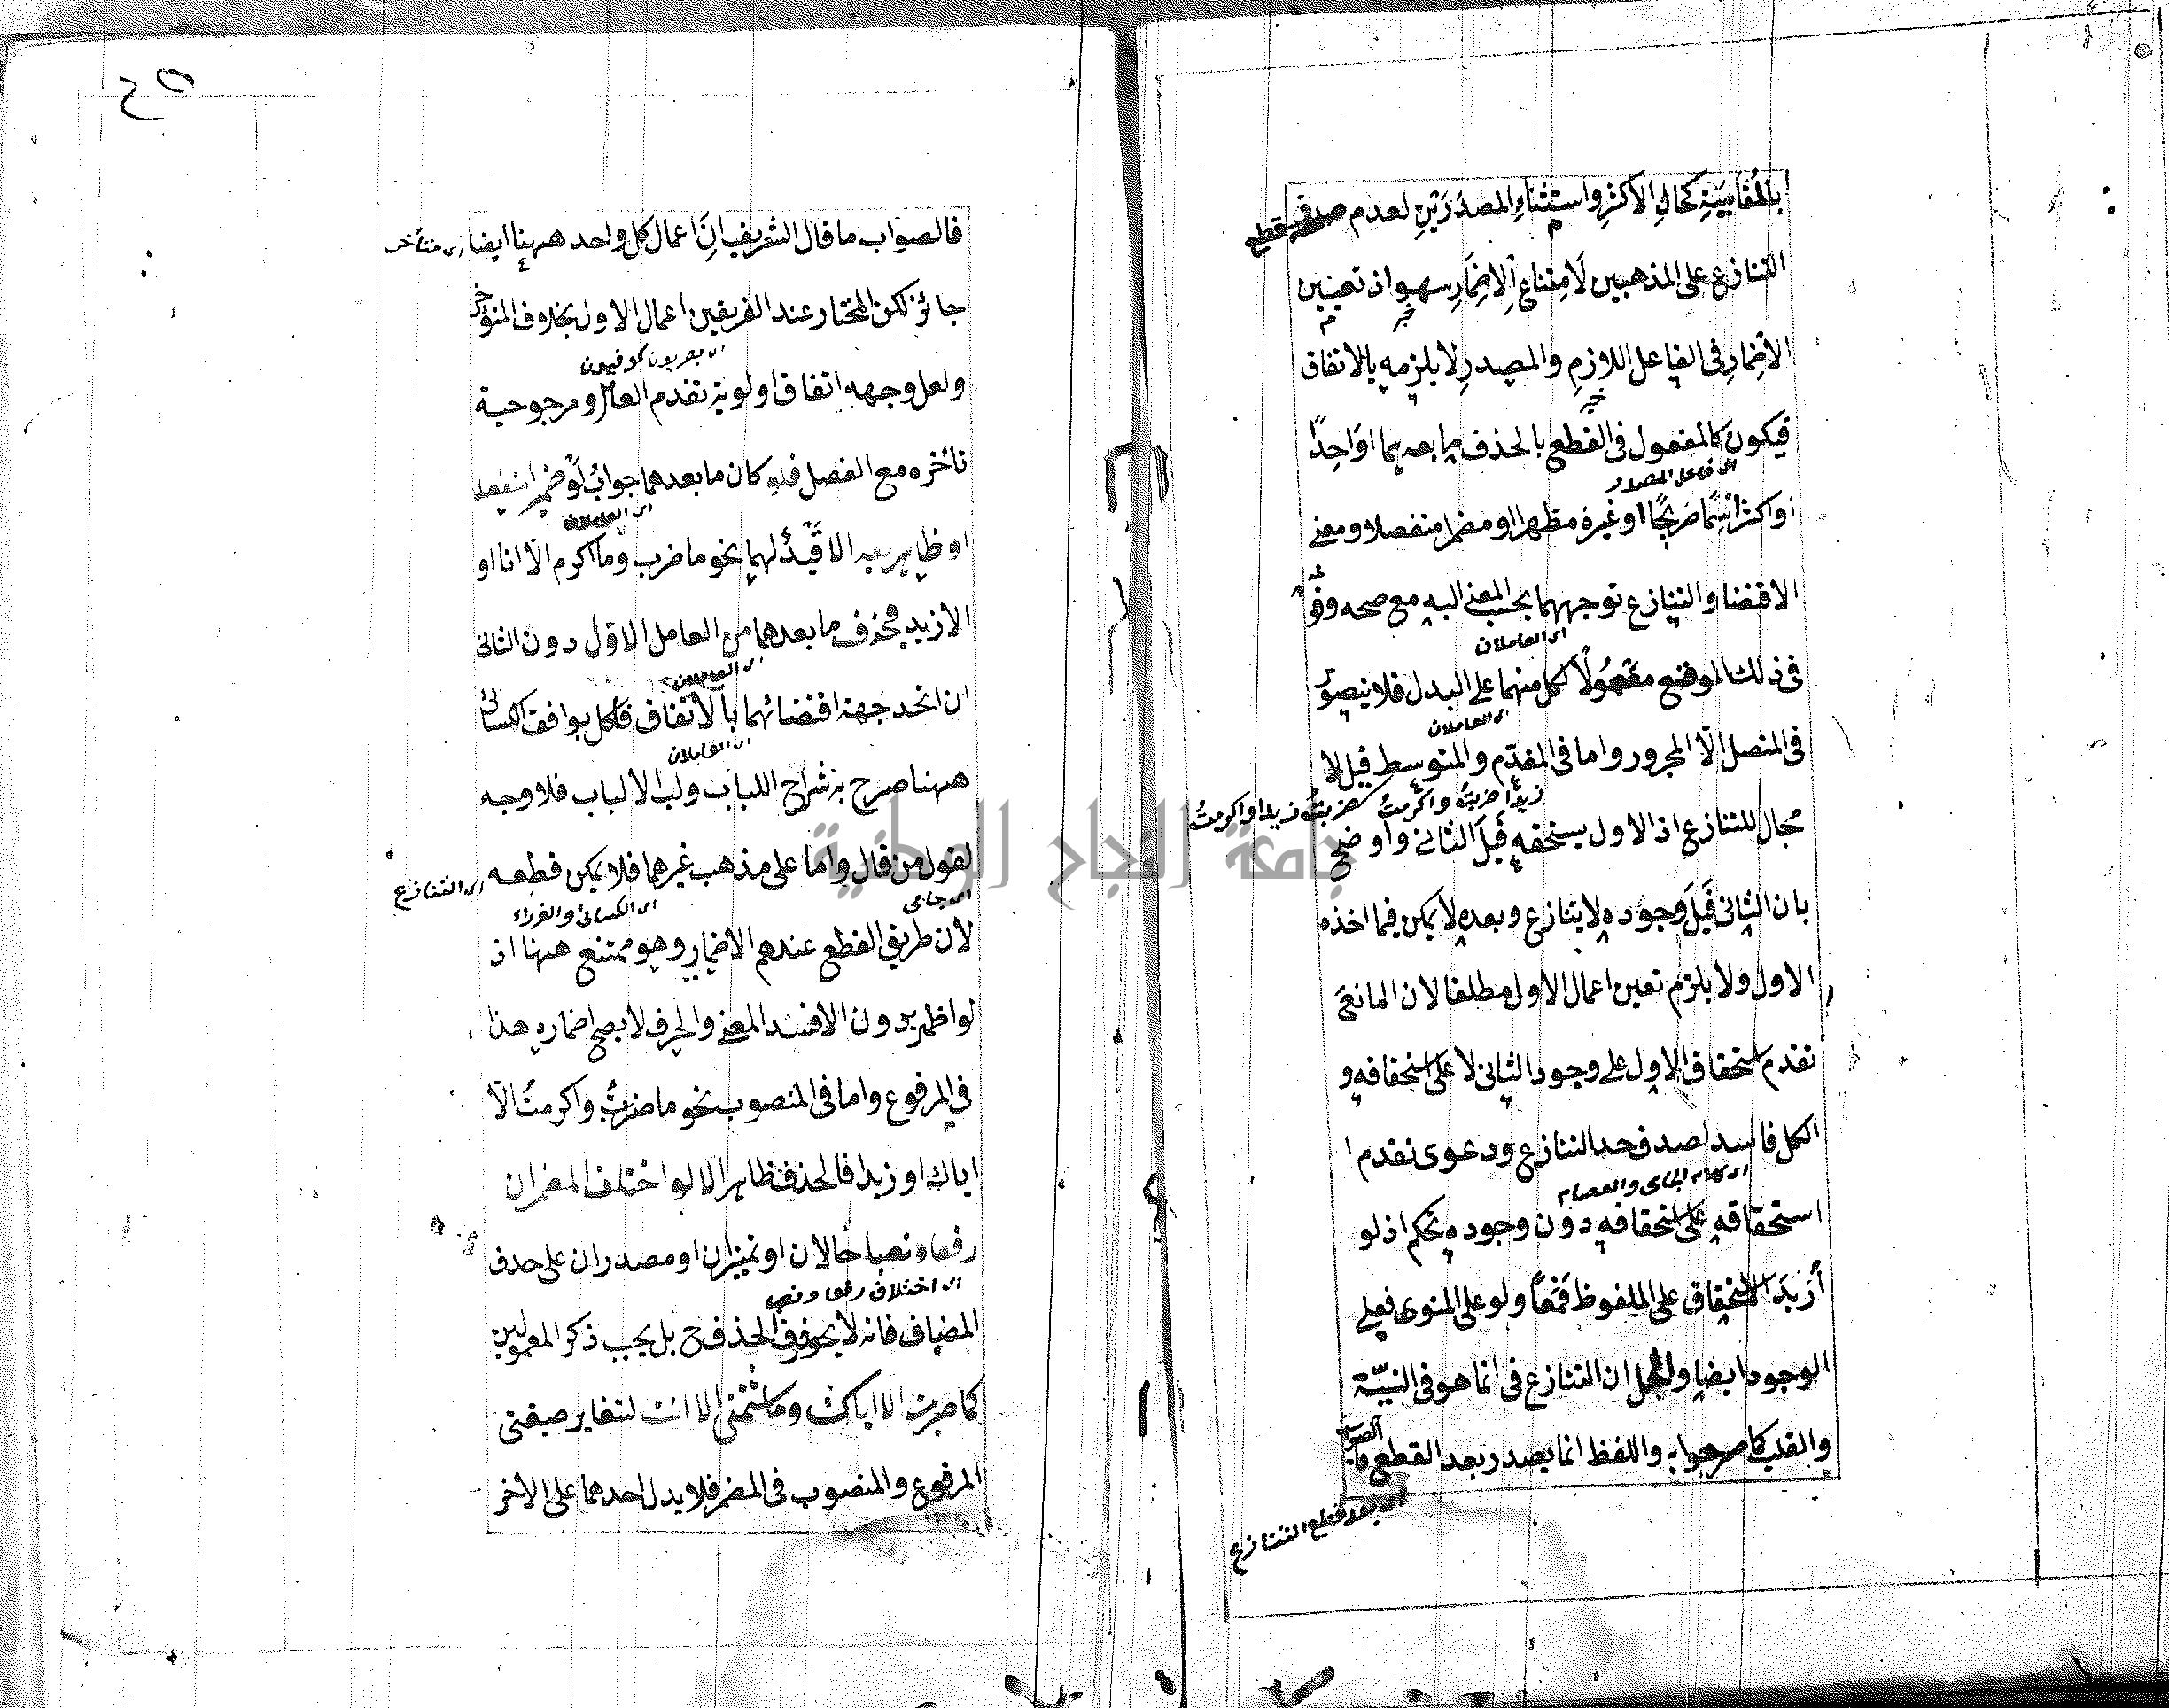 بالمقايسة كحال الاكثر واستثناء المصدرين لعدم صدق قطع
التنازع على المذهبين لامتناع الاضمار سهو اذ تعيين
الاضمار فى الفاعل اللازم والمصدر لا يلزمه بالاتفاق
فيكون كالمفعول فى القطع بالحذف ما بعدهما واحدًا
اى فاعل المصدر
او اكثر اسمًا صريحًا او غيره مظهرا او مضمرا منفصلا ومعنى
الاقتضا والتنازع توجههما بحسب المعنى اليه مع صحة وقوعه
اى العاملان
فى ذلك الموضع معمولًا لكل منهما على البدل فلا يتصور
اى العاملان
فى المتصل الّا المجرور واما فى المقدم والمتوسط قيل لا
زيدًا ضربتُ واكرمتُ كضربتُ زيدا واكرمتُ
مجال للتنازع اذ الاول يستحقه قبل الثانى واوضح
بان الثانى قبل وجوده لا يتنازع وبعده لا يمكن فيما اخذه
الاول ولا يلزم تعين اعمال الاول مطلقا لان المانع
تقدم استحقاق الاول على وجود الثانى لا على استحقاقه و
الكل فاسد لصدق حد التنازع ودعوى تقدم ا
اى كلام الجامى والعصام
استحقاقه على استحقاقه دون وجوده تحكم اذ لو
أريد الاستحقاق على الملفوظ فمعًا ولو على المنوى فعلى
الوجود ايضا ولعل ان التنازع فى انما هو فى النيّة
والقلب كما صرحوا به واللفظ انما يصدر بعد القطع
اى بعد قطع التنازع
فالصواب ما قال الشريف انّ اعمال كل واحد ههنا ايضا
اى متأخر
جائز لكن المختار عند الفريقين اعمال الاول بخلاف المتوخر
اى بصريون كوفيون
ولعل وجهه اتفاق اولوية تقدم العامل ومرجوحية
تأخره مع الفصل فلو كان ما بعدهما جواب لو ضمير منفصل
اى العاملان
او ظاهر بعد الا قيدٌ لهما نحو ما ضرب وما اكرم الّا انا او
الا زيد فحذف ما بعدهما من العامل الاول دون الثانى
اى العاملان
ان اتحد جهة اقتضائهما بالاتفاق فالكل يوافق الكسائى
اى العاملان
ههنا صرح به شراح اللباب ولب الالباب فلا وجه
لقول من قال واما على مذهب غيرهما فلا يمكن قطعه
اى التنازع
اى جامى
اى الكسائى والفراء
لان طريق القطع عندهم الاضمار وهو ممتنع ههنا اذ
لو اظهر بدون الا فسد المعنى والحرف لا يصح اضماره هذا
فى المرفوع واما فى المنصوب نحو ما ضربتُ واكرمتُ الّا
اياك او زيدا فالحذف ظاهر الا لو اختلف المضمران
رفعا ونصبا حالان او تميزان او مصدران على حذف
اى اختلاف رفعا ونصبا
المضاف فانه لا يجوز الحذف ح بل يجب ذكر المعمولين
كما ضربت الا اياك وما شتمنى الا انت لتغاير صيغتى
المرفوع والمنصوب فى المضمر فلا يدل احدهما على الآخر
جامعة النجاح الوطنية